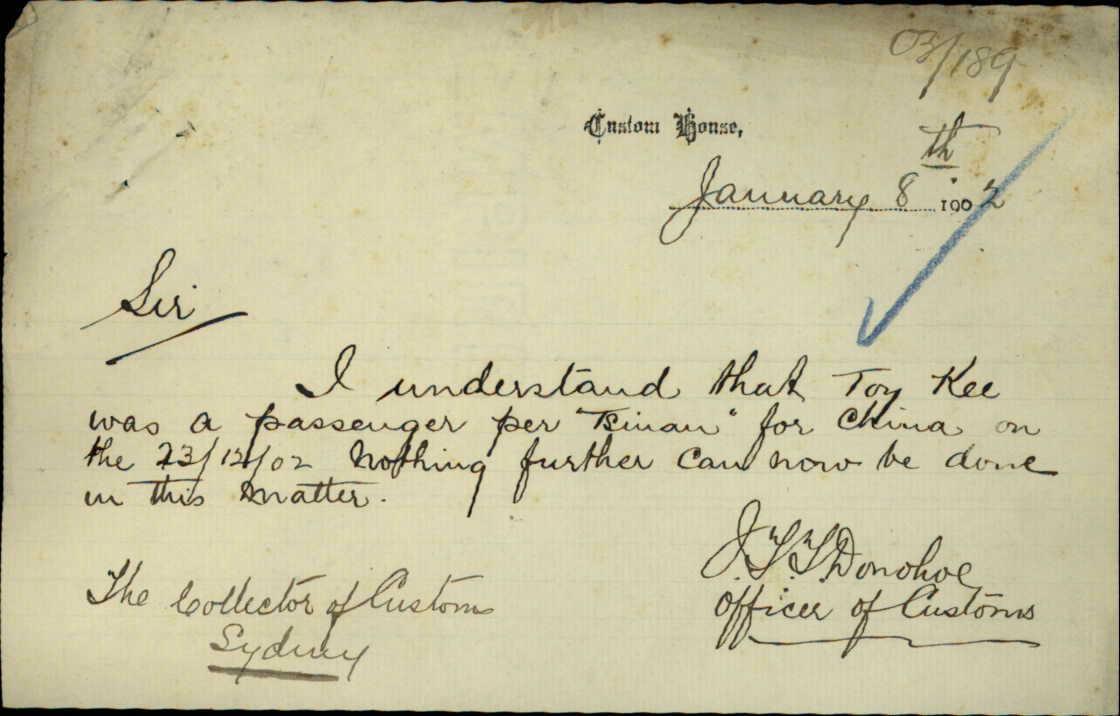 03/189
Custom House,
January 8th 1902
Sir
I understand that Toy Kee
was a passenger per "Tsinan" for China on
the 23/12/02 Nothing further can now be done
in this matter.
J.T.T. Donohoe
Officer of Customs
The Collector of Customs
Sydney